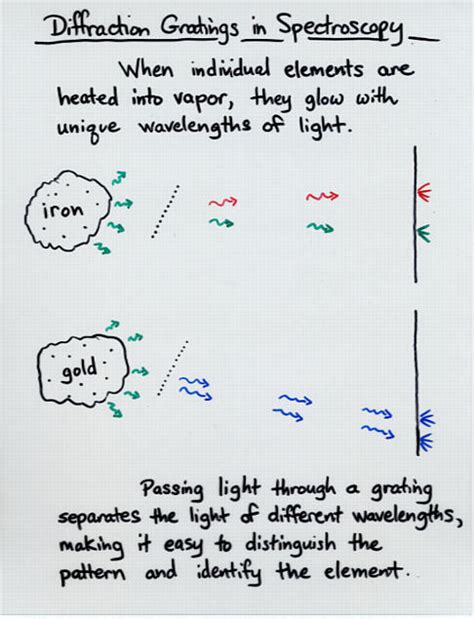 Diffraction Gratings in Spectroscopy
When individual elements are
heated into vapor, they glow with
unique wavelengths of light.
iron
gold
Passing light through a grating
separates the light of different wavelengths,
making it easy to distinguish the
pattern and identify the element.